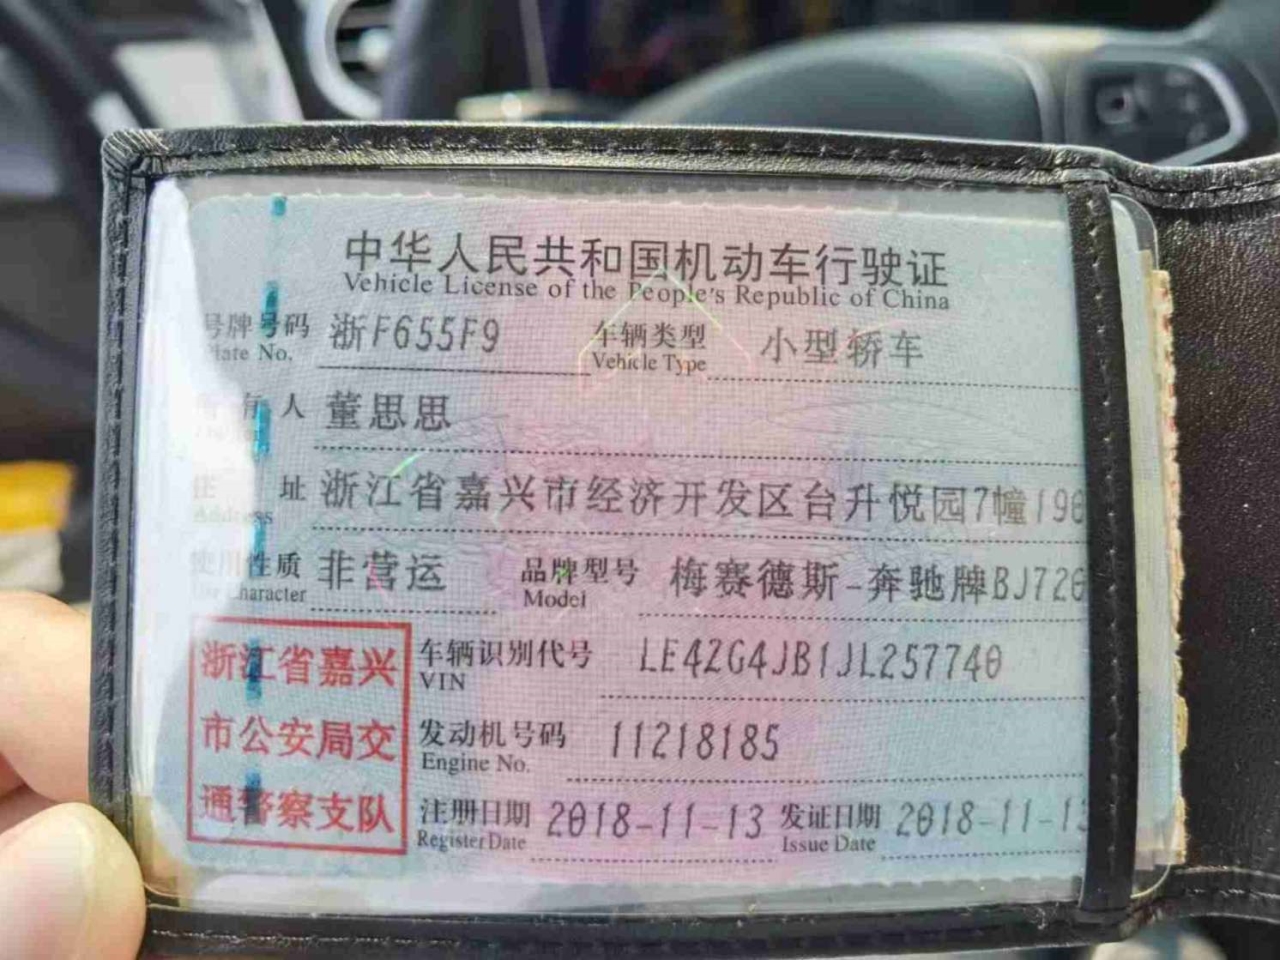 中华人民共和国机动车行驶证
Vehicle License of the People's Republic of China
号牌号码 浙F655F9 车辆类型 小型轿车
Plate No. Vehicle Type
所有人 董思思
住址 浙江省嘉兴市经济开发区台升悦园7幢190
Address
使用性质 非营运 品牌型号 梅赛德斯-奔驰牌BJ720
Use Character Model
浙江省嘉兴
市公安局交
通警察支队
车辆识别代号 LE4ZG4JB1JL257740
VIN
发动机号码 11218185
Engine No.
注册日期 2018-11-13 发证日期 2018-11-13
Register Date Issue Date